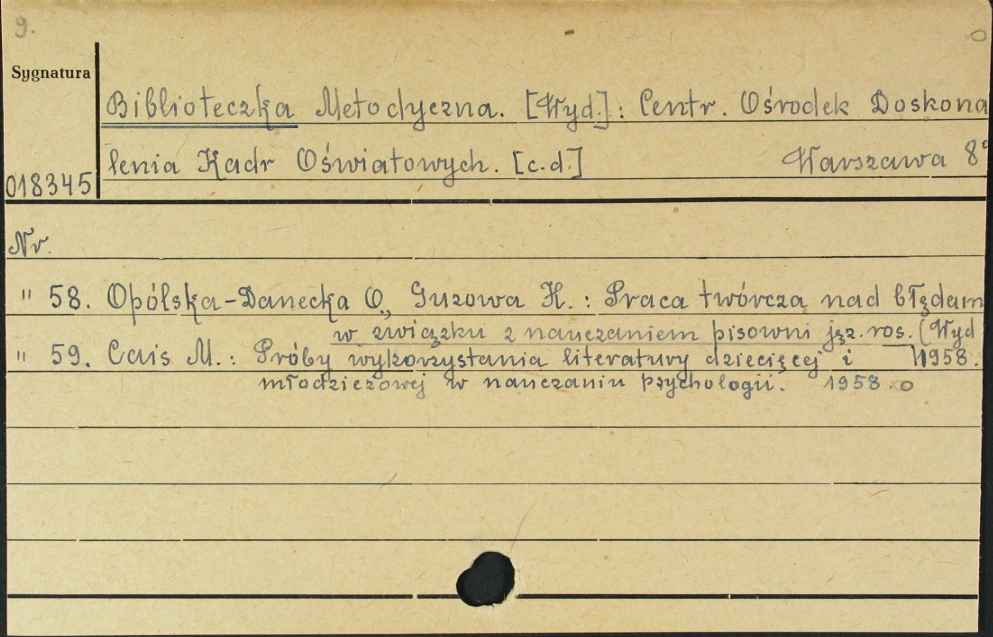 9.
Sygnatura
Biblioteczka Metodyczna. [Wyd.]: Centr. Ośrodek Doskona
lenia Kadr Oświatowych. [c.d.] Warszawa 8°
018345
Nr.
" 58. Opólska-Danecka O., Guzowa H. : Praca twórcza nad błędam
w związku z nauczaniem pisowni jęz. ros. (Wyd
" 59. Cais M. : Próby wykorzystania literatury dziecięcej i 1958.
młodzieżowej w nauczaniu psychologii. 1958.